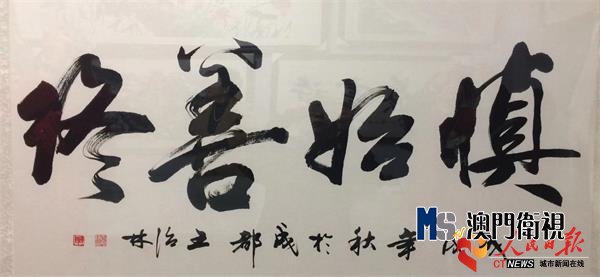 慎始善终
戌年秋於成都王治林
MS 澳門衛視
人民日报
CTNEWS 城市新闻在线